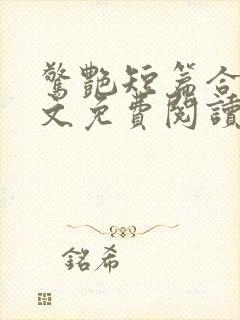 驚艷短篇合
文免費閱讀
銘希